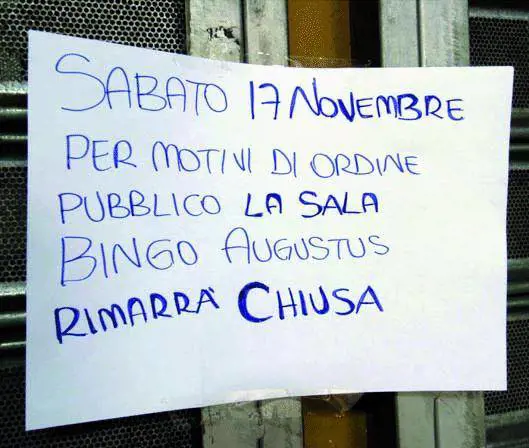 SABATO 17 NOVEMBRE
PER MOTIVI DI ORDINE
PUBBLICO LA SALA
BINGO AUGUSTUS
RIMARRA' CHIUSA